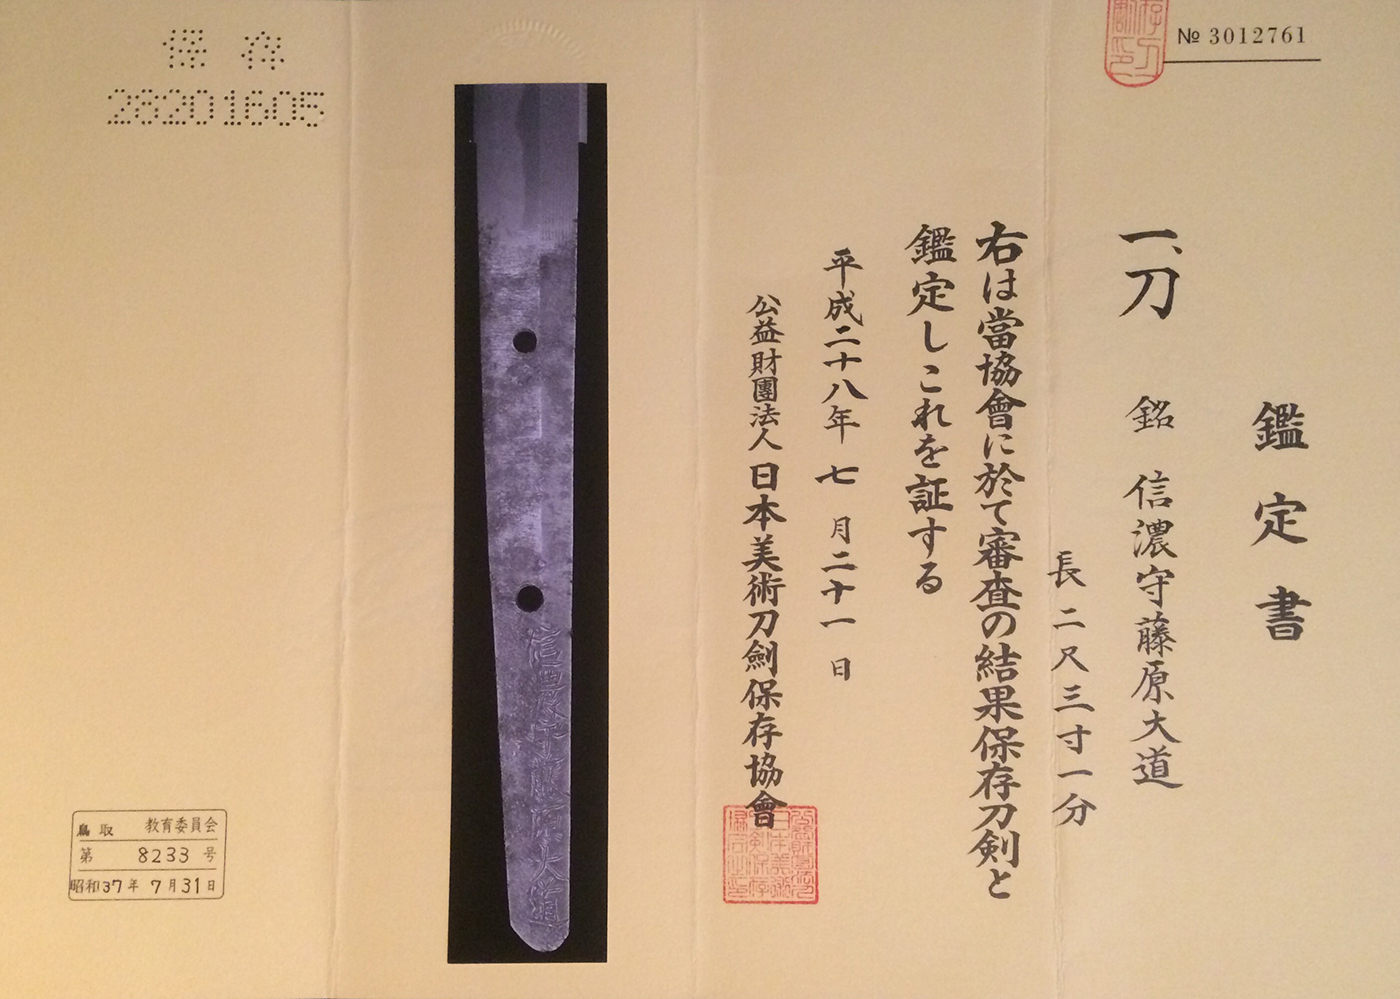 № 3012761
鑑定書
一、刀 銘 信濃守藤原大道
長二尺三寸一分
右は當協會に於て審査の結果保存刀剣と
鑑定しこれを証する
平成二十八年七月二十一日
公益財團法人日本美術刀劍保存協會
信濃守藤原大道
保存
28201605
鳥取 教育委員会
第 8233 号
昭和37年 7月31日